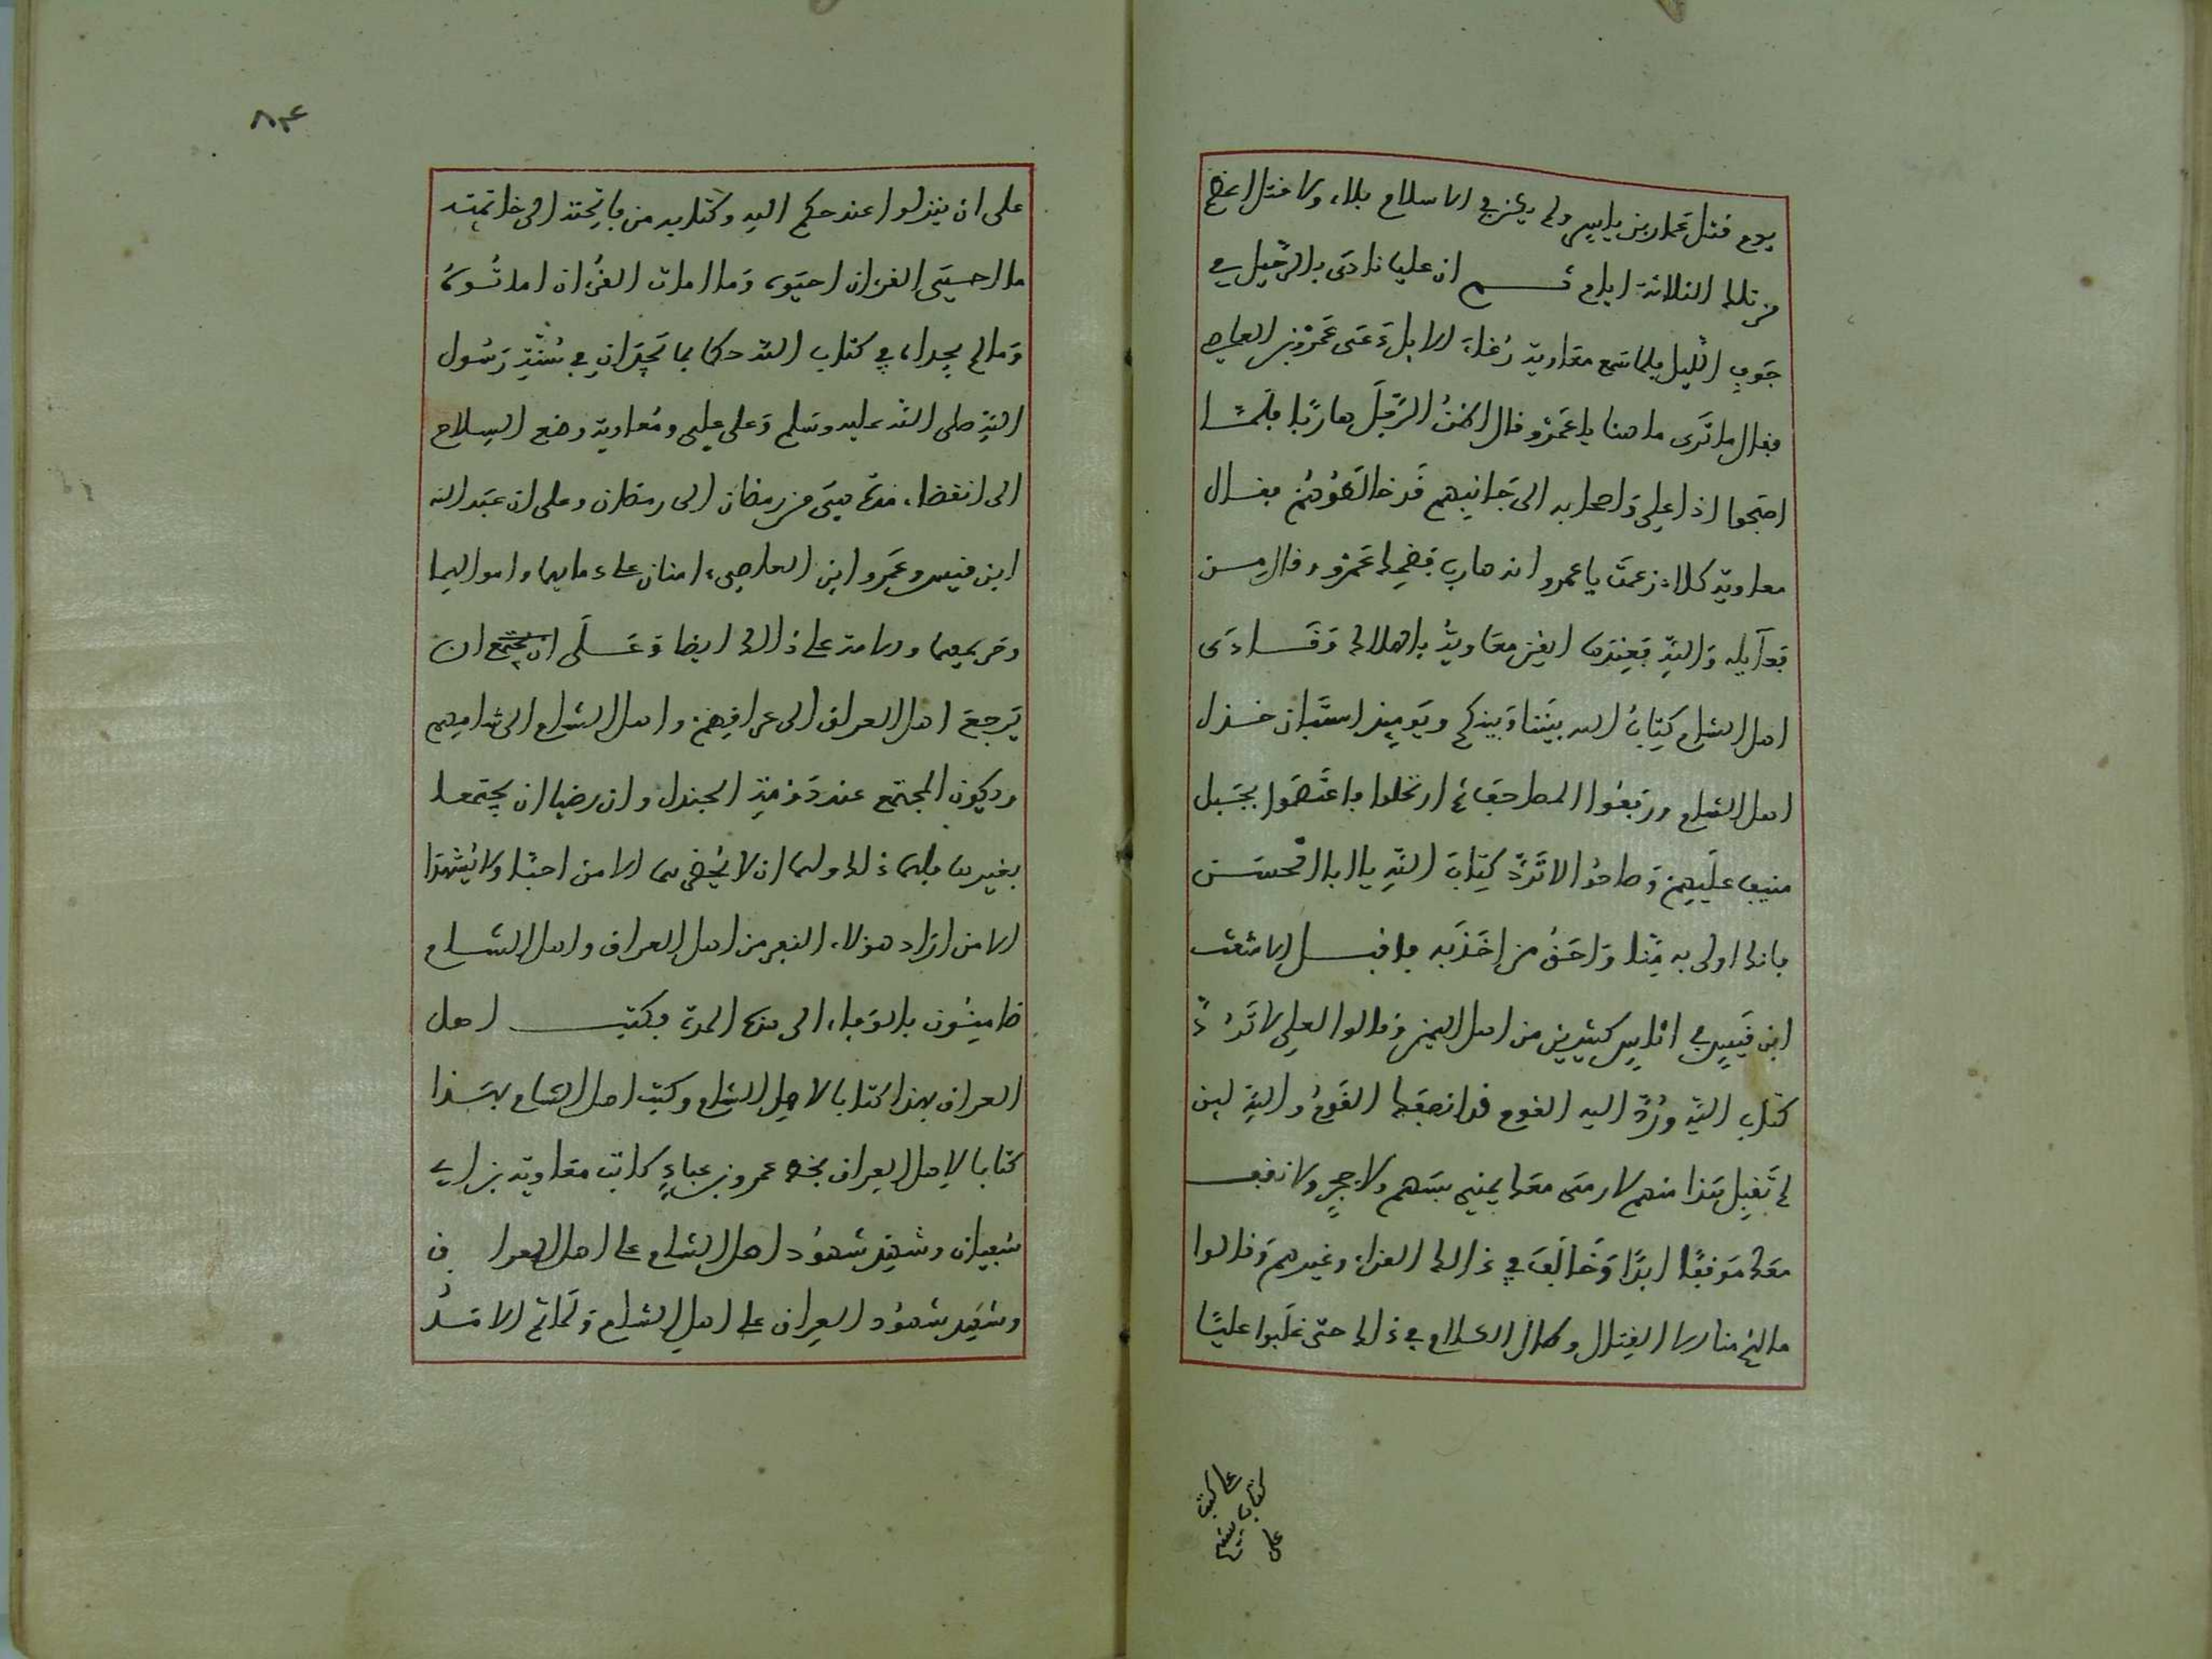 يوم قتل عمار بن ياسر ولم يكن في الاسلام بلاء ولا قتل اعظم
من تلك الثلاثة ايام ثم ان عليا نادى بالرحيل في
جوف الليل فلما سمع معاوية رغاء الابل دعى عمرو بن العاص
فقال ما ترى ما هنا يا عمرو قال اظن الرجل هاربا فلما
اصبحوا اذا علي واصحابه الى جانبهم قد خالطوهم فقال
معاوية كلا زعمت يا عمرو انه هارب فضحك عمرو وقال من
فعاله والله فعندها ايقن معاوية بالهلاك ونادى
اهل الشام كتاب الله بيننا وبينكم ويومئذ استبان خذل
اهل الشام ورفعوا المصاحف ثم ارتحلوا فاعتصموا بجبل
منيف عليهم وصاحوا لا ترد كتاب الله يا ابا الحسن
فانك اولى به منا واحق من اخذ به فاقبل الاشعث
ابن قيس في اناس كثيرين من اهل اليمن وقالوا لعلي لا ترد
كتاب الله ورد اليه القوم قد انصفك القوم والله لين
لم تقبل هذا منهم لا رمى معك يمني بسهم ولا حجر ولا نقف
معك موقفا ابدا وخالف في ذالك القراء وغيرهم وقالوا
ما لنخ منا الا القتال وطال الكلام في ذلك حتى غلبوا عليا
على كتب
كتاب بينهم
على
٨٣
على ان ينزلوا عند حكم الله وكتابه من فاتحته الى خاتمته
ما احيى القران احيوه وما امات القران اماتوه
وما لم يجداه في كتاب الله حكما بما تجدان في سنة رسول
الله صلى الله عليه وسلم وعلى علي ومعاوية وضع السلاح
الى انقضاء مدة هي من رمضان الى رمضان وعلى ان عبد الله
ابن قيس وعمرو ابن العاصي امنان على دمايهما واموالهما
وحريمهما والامة على ذالك ايضا وعلى ان يجتمع ان
يرجع اهل العراق الى عراقهم واهل الشام الى شامهم
ويكون المجتمع عند دومة الجندل وان رضيا ان يجتمعا
بغيرها فلهما ذلك ولهما ان لا يحضرهما الا من احبا ولا يشهدا
الا من ارادا هؤلاء النفر من اهل العراق واهل الشام
ضامنون بالوفاء الى هذه المدة فكتب اهل
العراق بهذا كتابا لاهل الشام وكتب اهل الشام بهذا
كتابا لاهل العراق بخط عمرو بن عباد كاتب معاوية بن ابي
سفيان وشهد شهود اهل الشام على اهل العراق
وشهد شهود العراق على اهل الشام